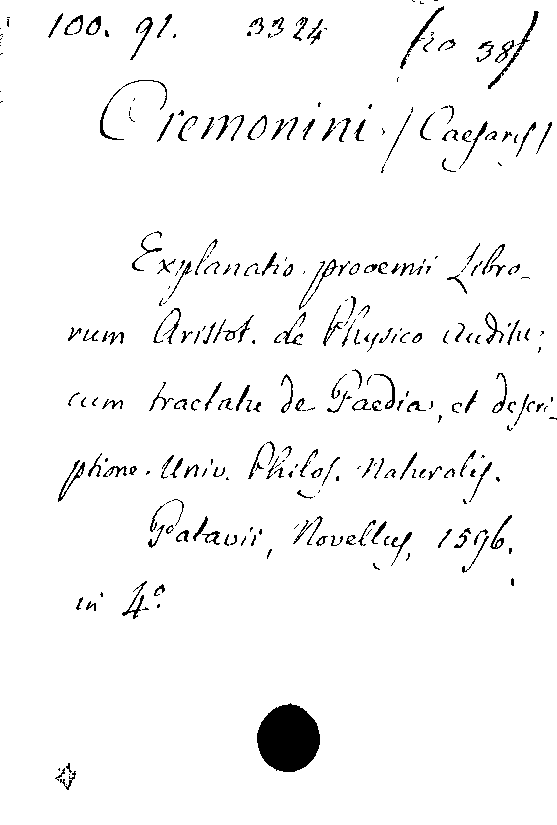 100. 91. 3324
Cremonini. (Caesaris)
Explanatio. prooemii Libro-
rum Aristot. de Physico Auditu;
cum tractatu de Paedia, et descri-
ptione. Univ. Philos. Naturalis.
Patavii, Novellus, 1596.
in 4.º